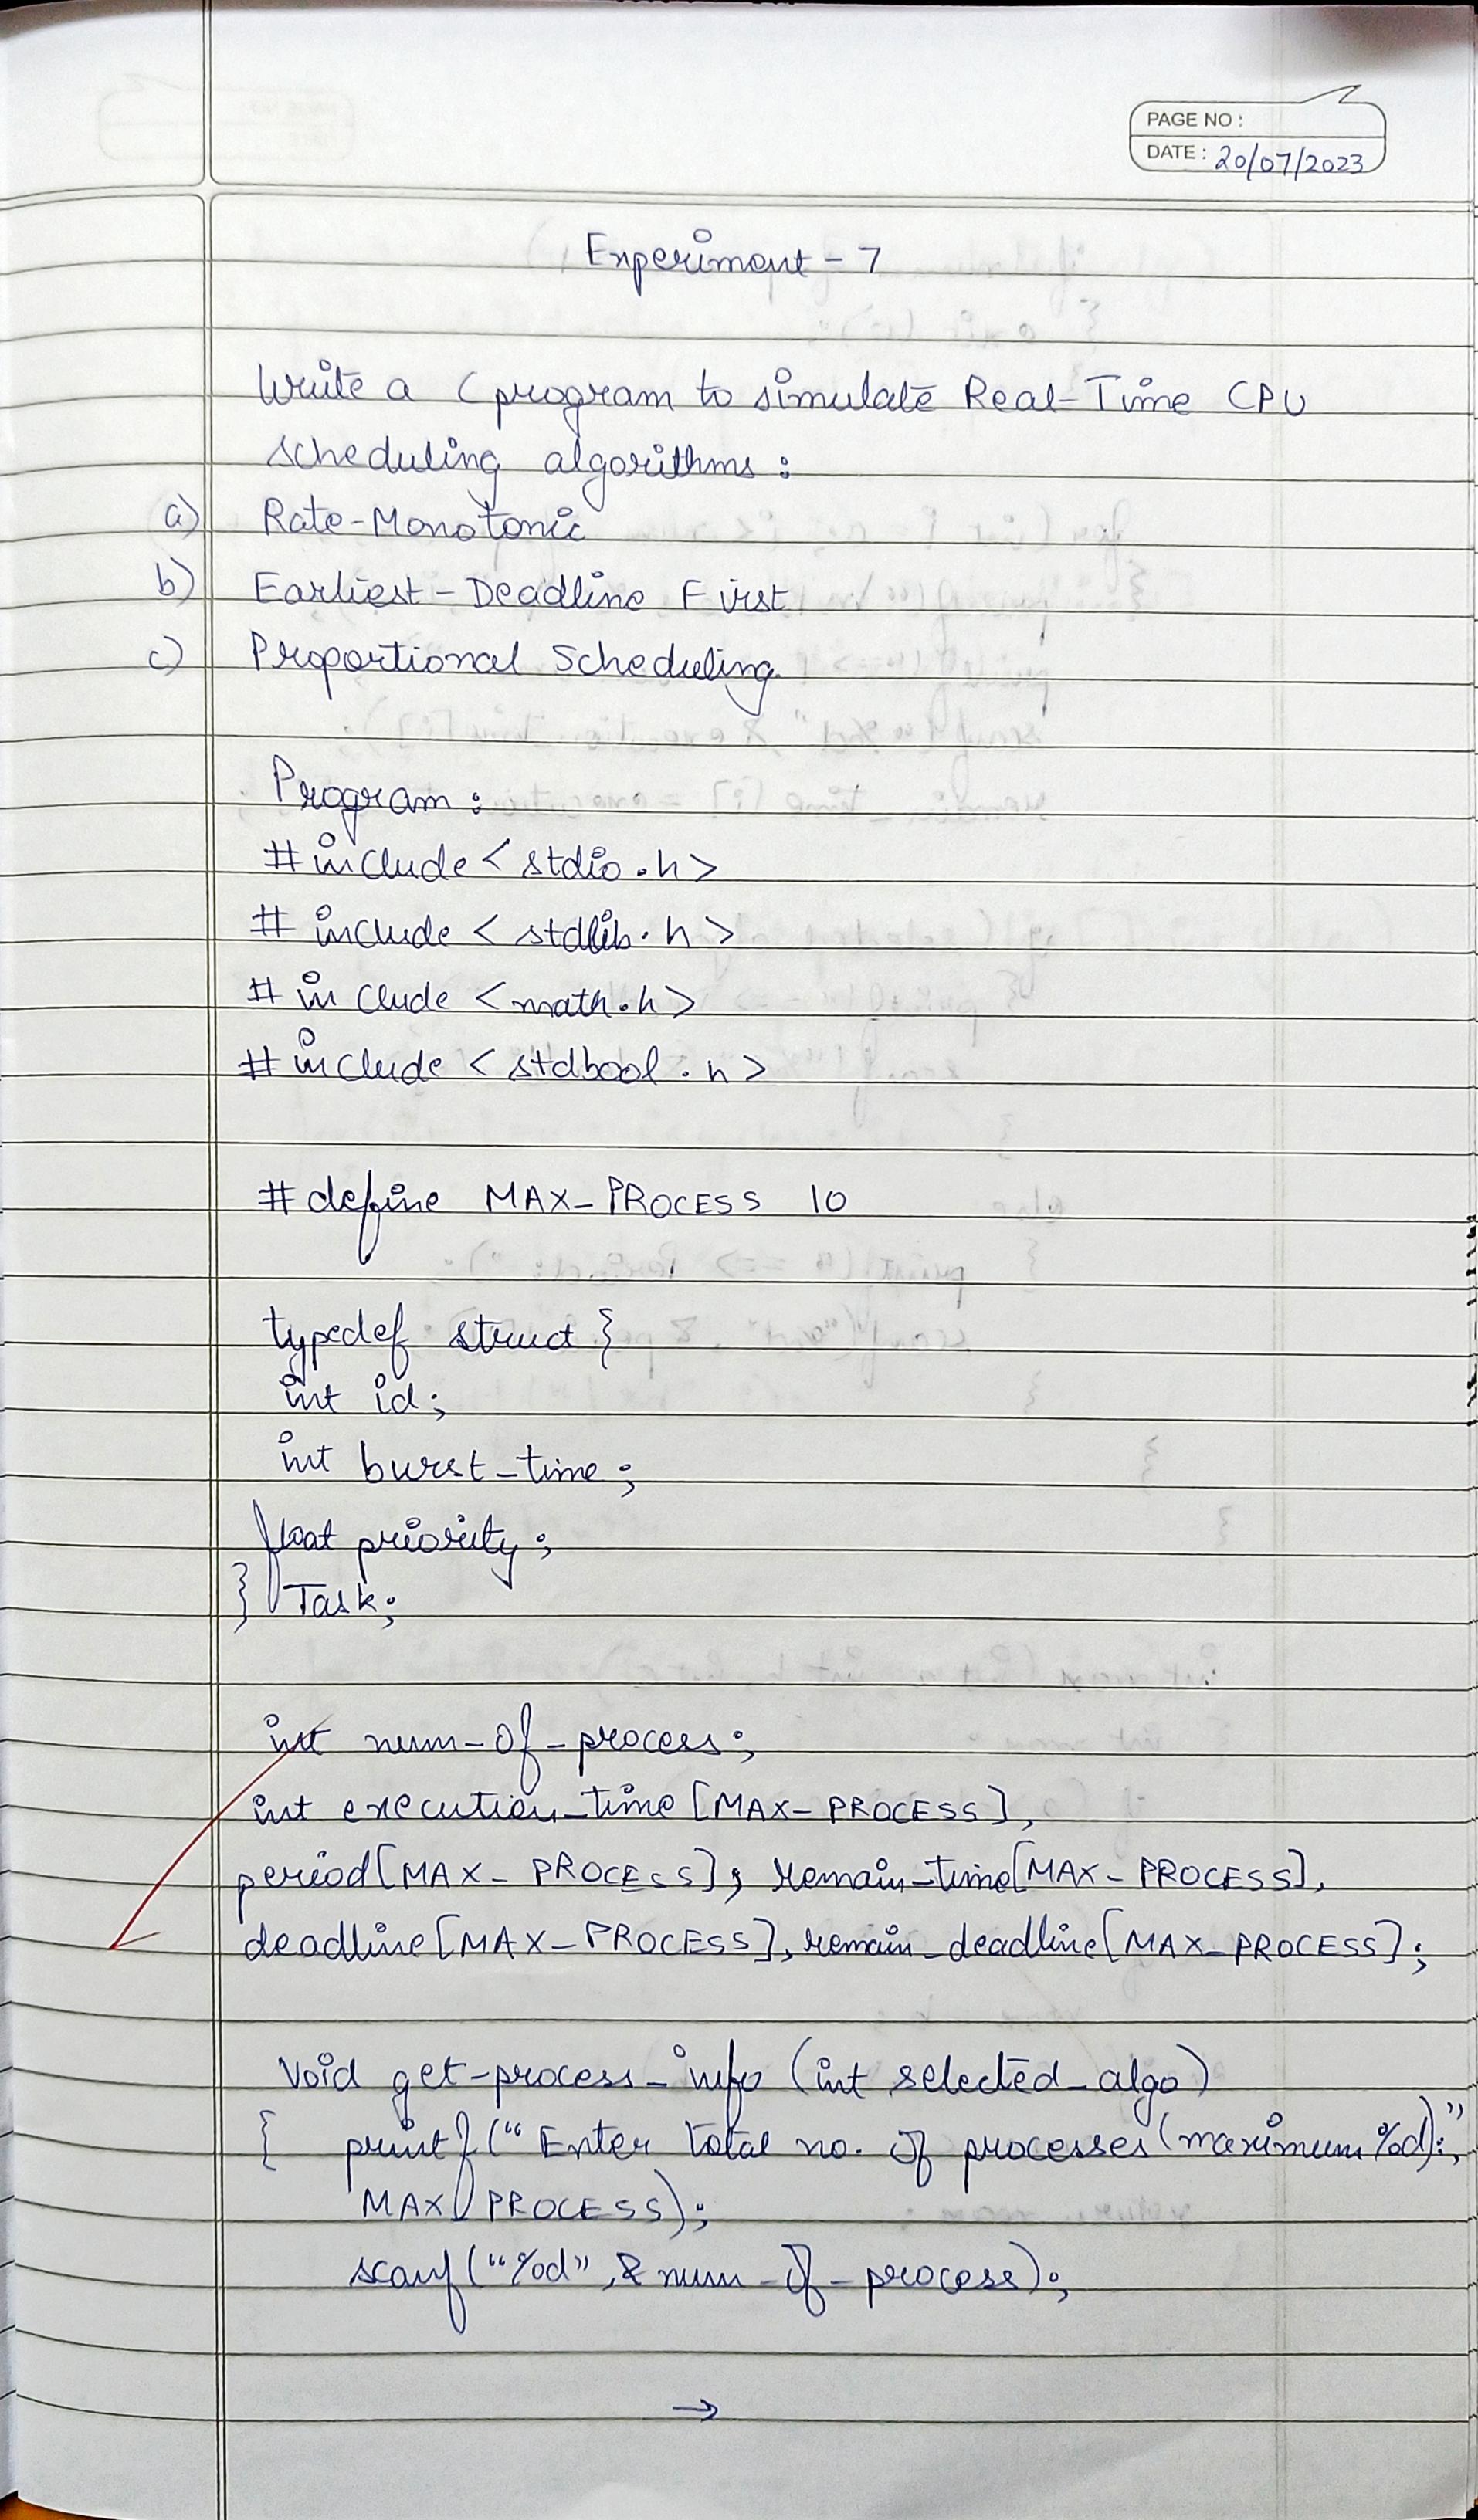 PAGE NO :
DATE : 20/07/2023
Experiment - 7
Write a C program to simulate Real-Time CPU
scheduling algorithms :
a) Rate-Monotonic
b) Earliest - Deadline First
c) Proportional Scheduling
Program :
# include < stdio.h >
# include < stdlib.h >
# include < math.h >
# include < stdbool.h >
# define MAX_PROCESS 10
typedef struct {
int id;
int burst_time ;
float priority ;
} Task;
int num_of_process ;
int execution_time [MAX_PROCESS],
period[MAX_PROCESS], remain_time[MAX_PROCESS],
deadline[MAX_PROCESS], remain_deadline[MAX_PROCESS];
Void get_process_info (int selected_algo)
{ printf (“ Enter total no. of processes (maximum %d):”,
MAX_PROCESS);
scanf (“%d” , & num_of_process) ;
→